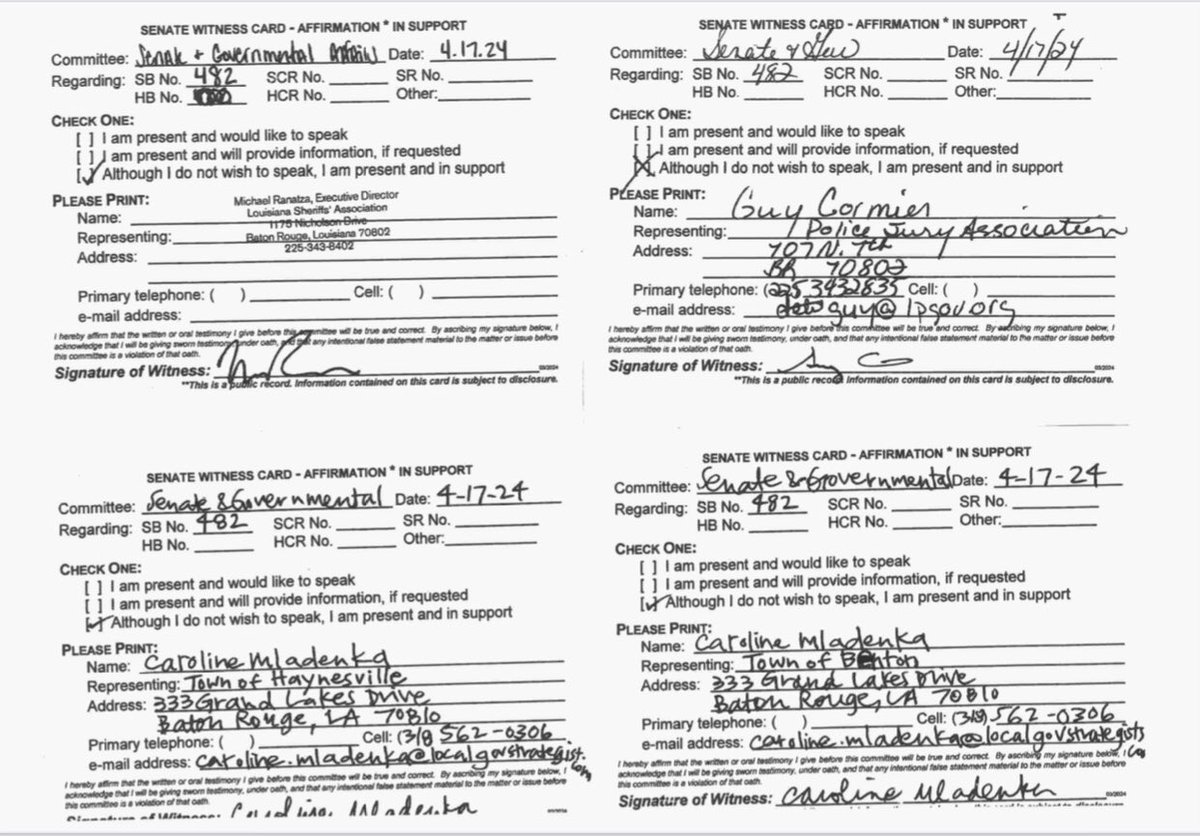 SENATE WITNESS CARD - AFFIRMATION * IN SUPPORT
Committee: Senate + Governmental Affairs Date: 4.17.24
Regarding: SB No. 482 SCR No. SR No.
HB No. HCR No. Other:
CHECK ONE:
[ ] I am present and would like to speak
[ ] I am present and will provide information, if requested
[✓] Although I do not wish to speak, I am present and in support
PLEASE PRINT:
Michael Ranatza, Executive Director
Louisiana Sheriffs' Association
Name: 1175 Nicholson Drive
Representing: Baton Rouge, Louisiana 70802
225-343-8402
Address:
Primary telephone: ( ) Cell: ( )
e-mail address:
I hereby affirm that the written or oral testimony I give before this committee will be true and correct. By ascribing my signature below, I
acknowledge that I will be giving sworn testimony, under oath, and that any intentional false statement material to the matter or issue before
this committee is a violation of that oath.
Signature of Witness:
**This is a public record. Information contained on this card is subject to disclosure.
03/2024
SENATE WITNESS CARD - AFFIRMATION * IN SUPPORT
Committee: Senate & Gov Date: 4/17/24
Regarding: SB No. 482 SCR No. SR No.
HB No. HCR No. Other:
CHECK ONE:
[ ] I am present and would like to speak
[ ] I am present and will provide information, if requested
[X] Although I do not wish to speak, I am present and in support
PLEASE PRINT:
Name: Guy Cormier
Representing: Police Jury Association
Address: 707 N. 7th
BR 70802
Primary telephone: (225 3432835 Cell: ( )
e-mail address: guy@lpgov.org
I hereby affirm that the written or oral testimony I give before this committee will be true and correct. By ascribing my signature below, I
acknowledge that I will be giving sworn testimony, under oath, and that any intentional false statement material to the matter or issue before
this committee is a violation of that oath.
Signature of Witness:
**This is a public record Information contained on this card is subject to disclosure.
03/2024
SENATE WITNESS CARD - AFFIRMATION * IN SUPPORT
Committee: Senate & Governmental Date: 4-17-24
Regarding: SB No. 482 SCR No. SR No.
HB No. HCR No. Other:
CHECK ONE:
[ ] I am present and would like to speak
[ ] I am present and will provide information, if requested
[✓] Although I do not wish to speak, I am present and in support
PLEASE PRINT:
Name: Caroline Mladenka
Representing: Town of Haynesville
Address: 333 Grand Lakes Drive
Baton Rouge, LA 70810
Primary telephone: ( ) Cell: (318) 562-0306
e-mail address: caroline.mladenka@localgovstrategist.com
I hereby affirm that the written or oral testimony I give before this committee will be true and correct. By ascribing my signature below, I
acknowledge that I will be giving sworn testimony, under oath, and that any intentional false statement material to the matter or issue before
this committee is a violation of that oath.
Signature of Witness: Caroline Mladenka
SENATE WITNESS CARD - AFFIRMATION * IN SUPPORT
Committee: Senate & Governmental Date: 4-17-24
Regarding: SB No. 482 SCR No. SR No.
HB No. HCR No. Other:
CHECK ONE:
[ ] I am present and would like to speak
[ ] I am present and will provide information, if requested
[✓] Although I do not wish to speak, I am present and in support
PLEASE PRINT:
Name: Caroline Mladenka
Representing: Town of Benton
Address: 333 Grand Lakes Drive
Baton Rouge, LA 70810
Primary telephone: ( ) Cell: (318) 562-0306
e-mail address: caroline.mladenka@localgovstrategists
I hereby affirm that the written or oral testimony I give before this committee will be true and correct. By ascribing my signature below, I
acknowledge that I will be giving sworn testimony, under oath, and that any intentional false statement material to the matter or issue before
this committee is a violation of that oath.
Signature of Witness: Caroline Mladenka
03/2024